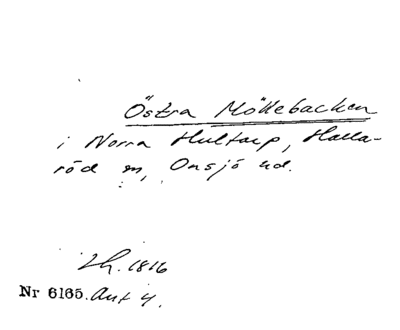 Östra Möllebacken
i Norra Hultarp, Halla-
röd sn, Onsjö hd.
Lh. 1816
Nr 6165. Avt 4.